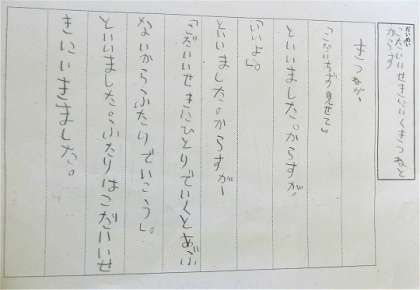 だいめい
こだいいせきにいくきつねと
からす
きつねが、
「こだいちず見せて」
といいました。からすが。
「いいよ」。
といいました。からすがー
「こだいいせきにひとりでいくとあぶ
ないからふたりでいこう」。
といいました。ふたりはこだいいせ
きにいきました。